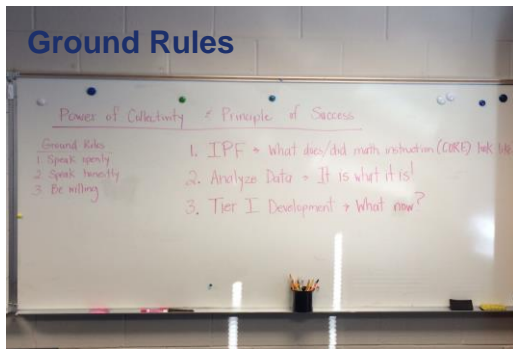 Ground Rules
Power of Collectivity & Principle of Success
Ground Rules
1. Speak openly
2. Speak honestly
3. Be willing
1. IPF → What does/did math instruction (CORE) look like
2. Analyze Data → It is what it is!
3. Tier I Development → What now?